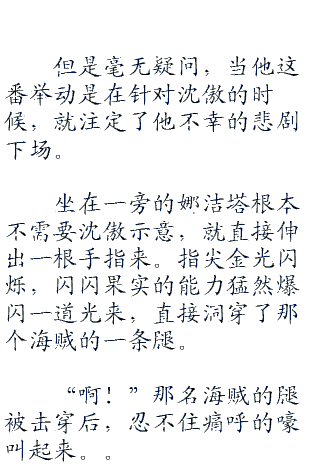 但是毫无疑问，当他这
番举动是在针对沈傲的时
候，就注定了他不幸的悲剧
下场。
坐在一旁的娜洁塔根本
不需要沈傲示意，就直接伸
出一根手指来。指尖金光闪
烁，闪闪果实的能力猛然爆
闪一道光来，直接洞穿了那
个海贼的一条腿。
“啊！”那名海贼的腿
被击穿后，忍不住痛呼的嚎
叫起来。。